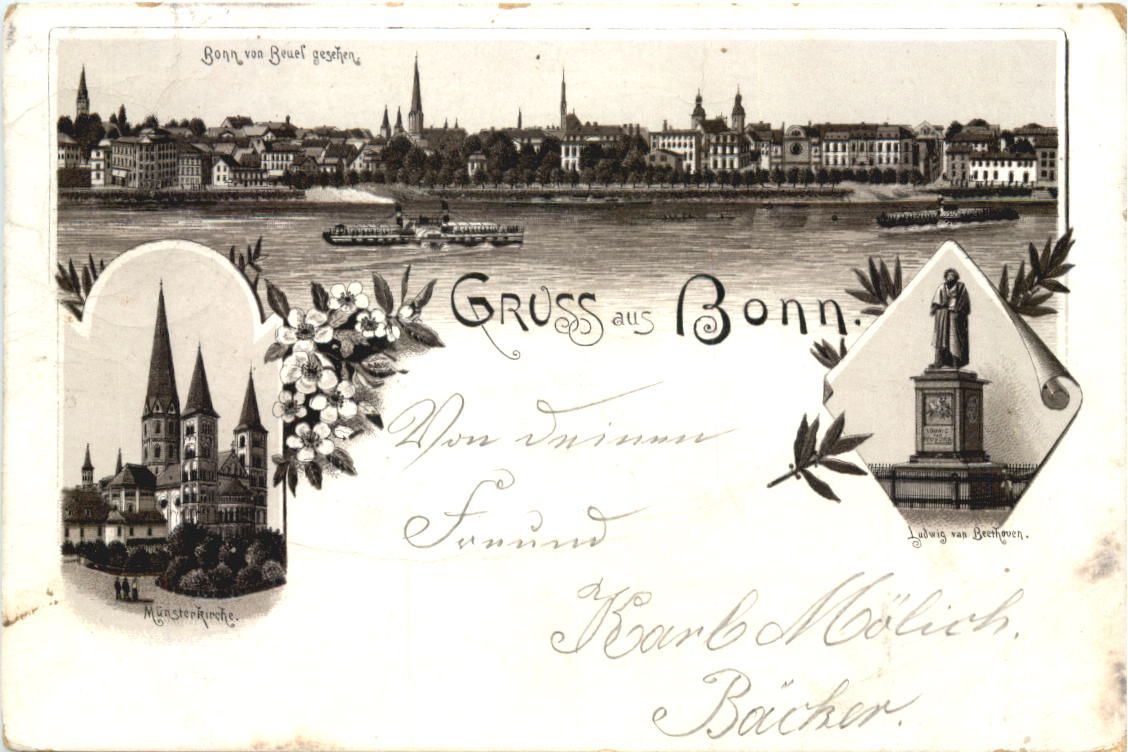 Bonn von Beuel gesehen.
Gruss aus Bonn.
Von deinen
Freund
Karl Mölich.
Bäcker.
Ludwig van Beethoven.
Münsterkirche.